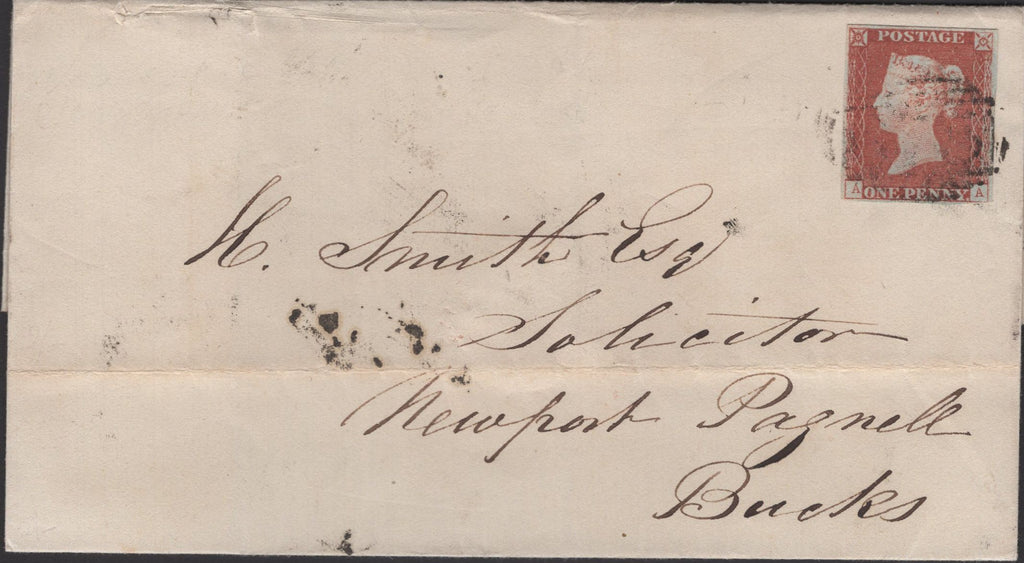 POSTAGE
A ONE PENNY A
H. Smith Esq
Solicitor
Newport Pagnell
Bucks